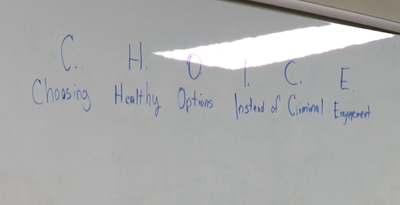 C. H. O. I. C. E.
Choosing Healthy Options Instead of Criminal Engagement